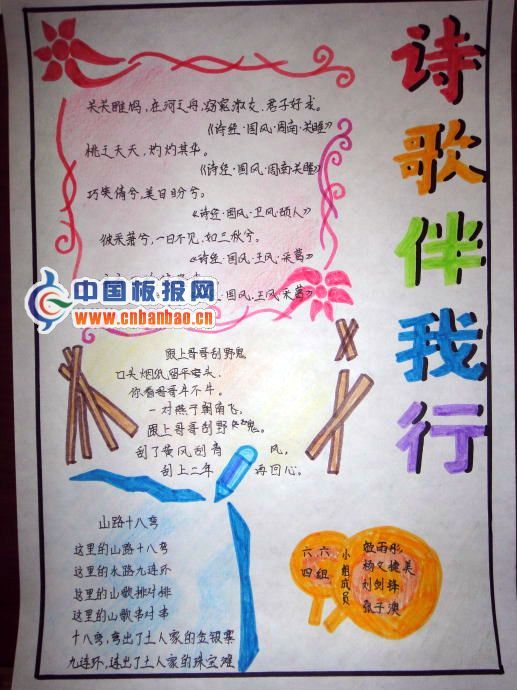 诗歌伴我行
关关雎鸠,在河之舟,窈窕淑女,君子好逑。
《诗经·国风·周南·关雎》
桃之夭夭,灼灼其华。
《诗经·国风·周南关雎》
巧笑倩兮,美目盼兮。
《诗经·国风·卫风·硕人》
彼采萧兮,一日不见,如三秋兮。
《诗经·国风·王风·采葛》
国风.王风.采葛》
中国板报网
www.cnbanbao.cn
跟上哥哥刮野鬼
你看哥哥牛不牛。
跟上哥哥刮野鬼。
刮了黄风刮青风,
刮上二年再回心。
山路十八弯
这里的山路十八弯
这里的水路九连环
这里的山歌排对排
这里的山歌串对串
十八弯,弯出了土人家的金银寨
九连环,连出了土人家的珠宝滩
六六
四组
小组成员
杨文捷美
刘剑锋
袁子澳